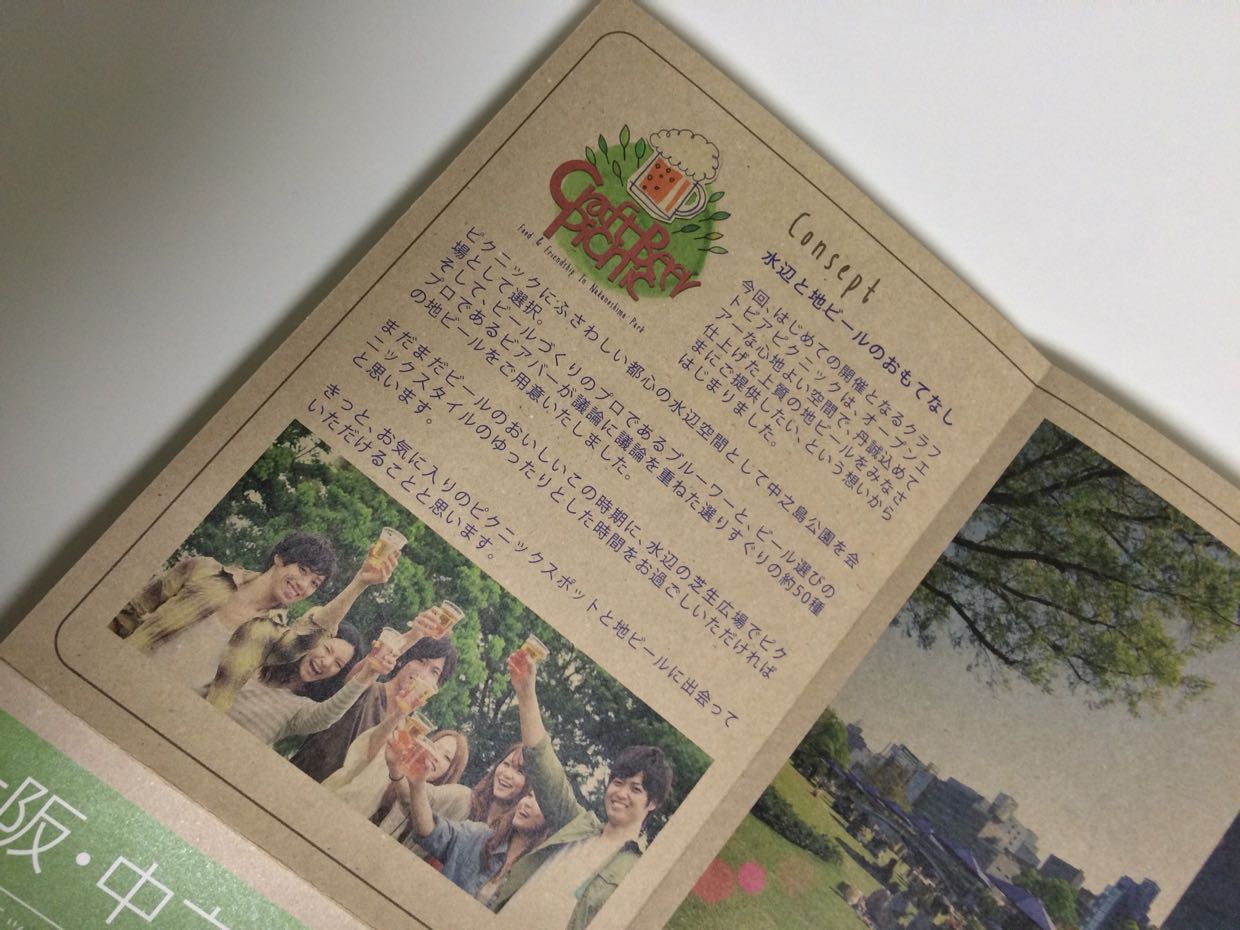 Craft Beer
Picnic
Food & Friendship In Nakanoshima Park
Consept
水辺と地ビールのおもてなし
今回、はじめての開催となるクラフ
トビアピクニックは、オープンエ
アーな心地よい空間で、丹誠込めて
仕上げた上質の地ビールをみなさ
まにご提供したい、という想いから
はじまりました。
ピクニックにふさわしい都心の水辺空間として中之島公園を会
場として選択。
そして、ビールづくりのプロであるブルーワーと、ビール選びの
プロであるビアバーが議論に議論を重ねた選りすぐりの約50種
の地ビールをご用意いたしました。
まだまだビールのおいしいこの時期に、水辺の芝生広場でピク
ニックスタイルのゆったりとした時間をお過ごしいただければ
と思います。
きっと、お気に入りのピクニックスポットと地ビールに出会って
いただけることと思います。
阪・中